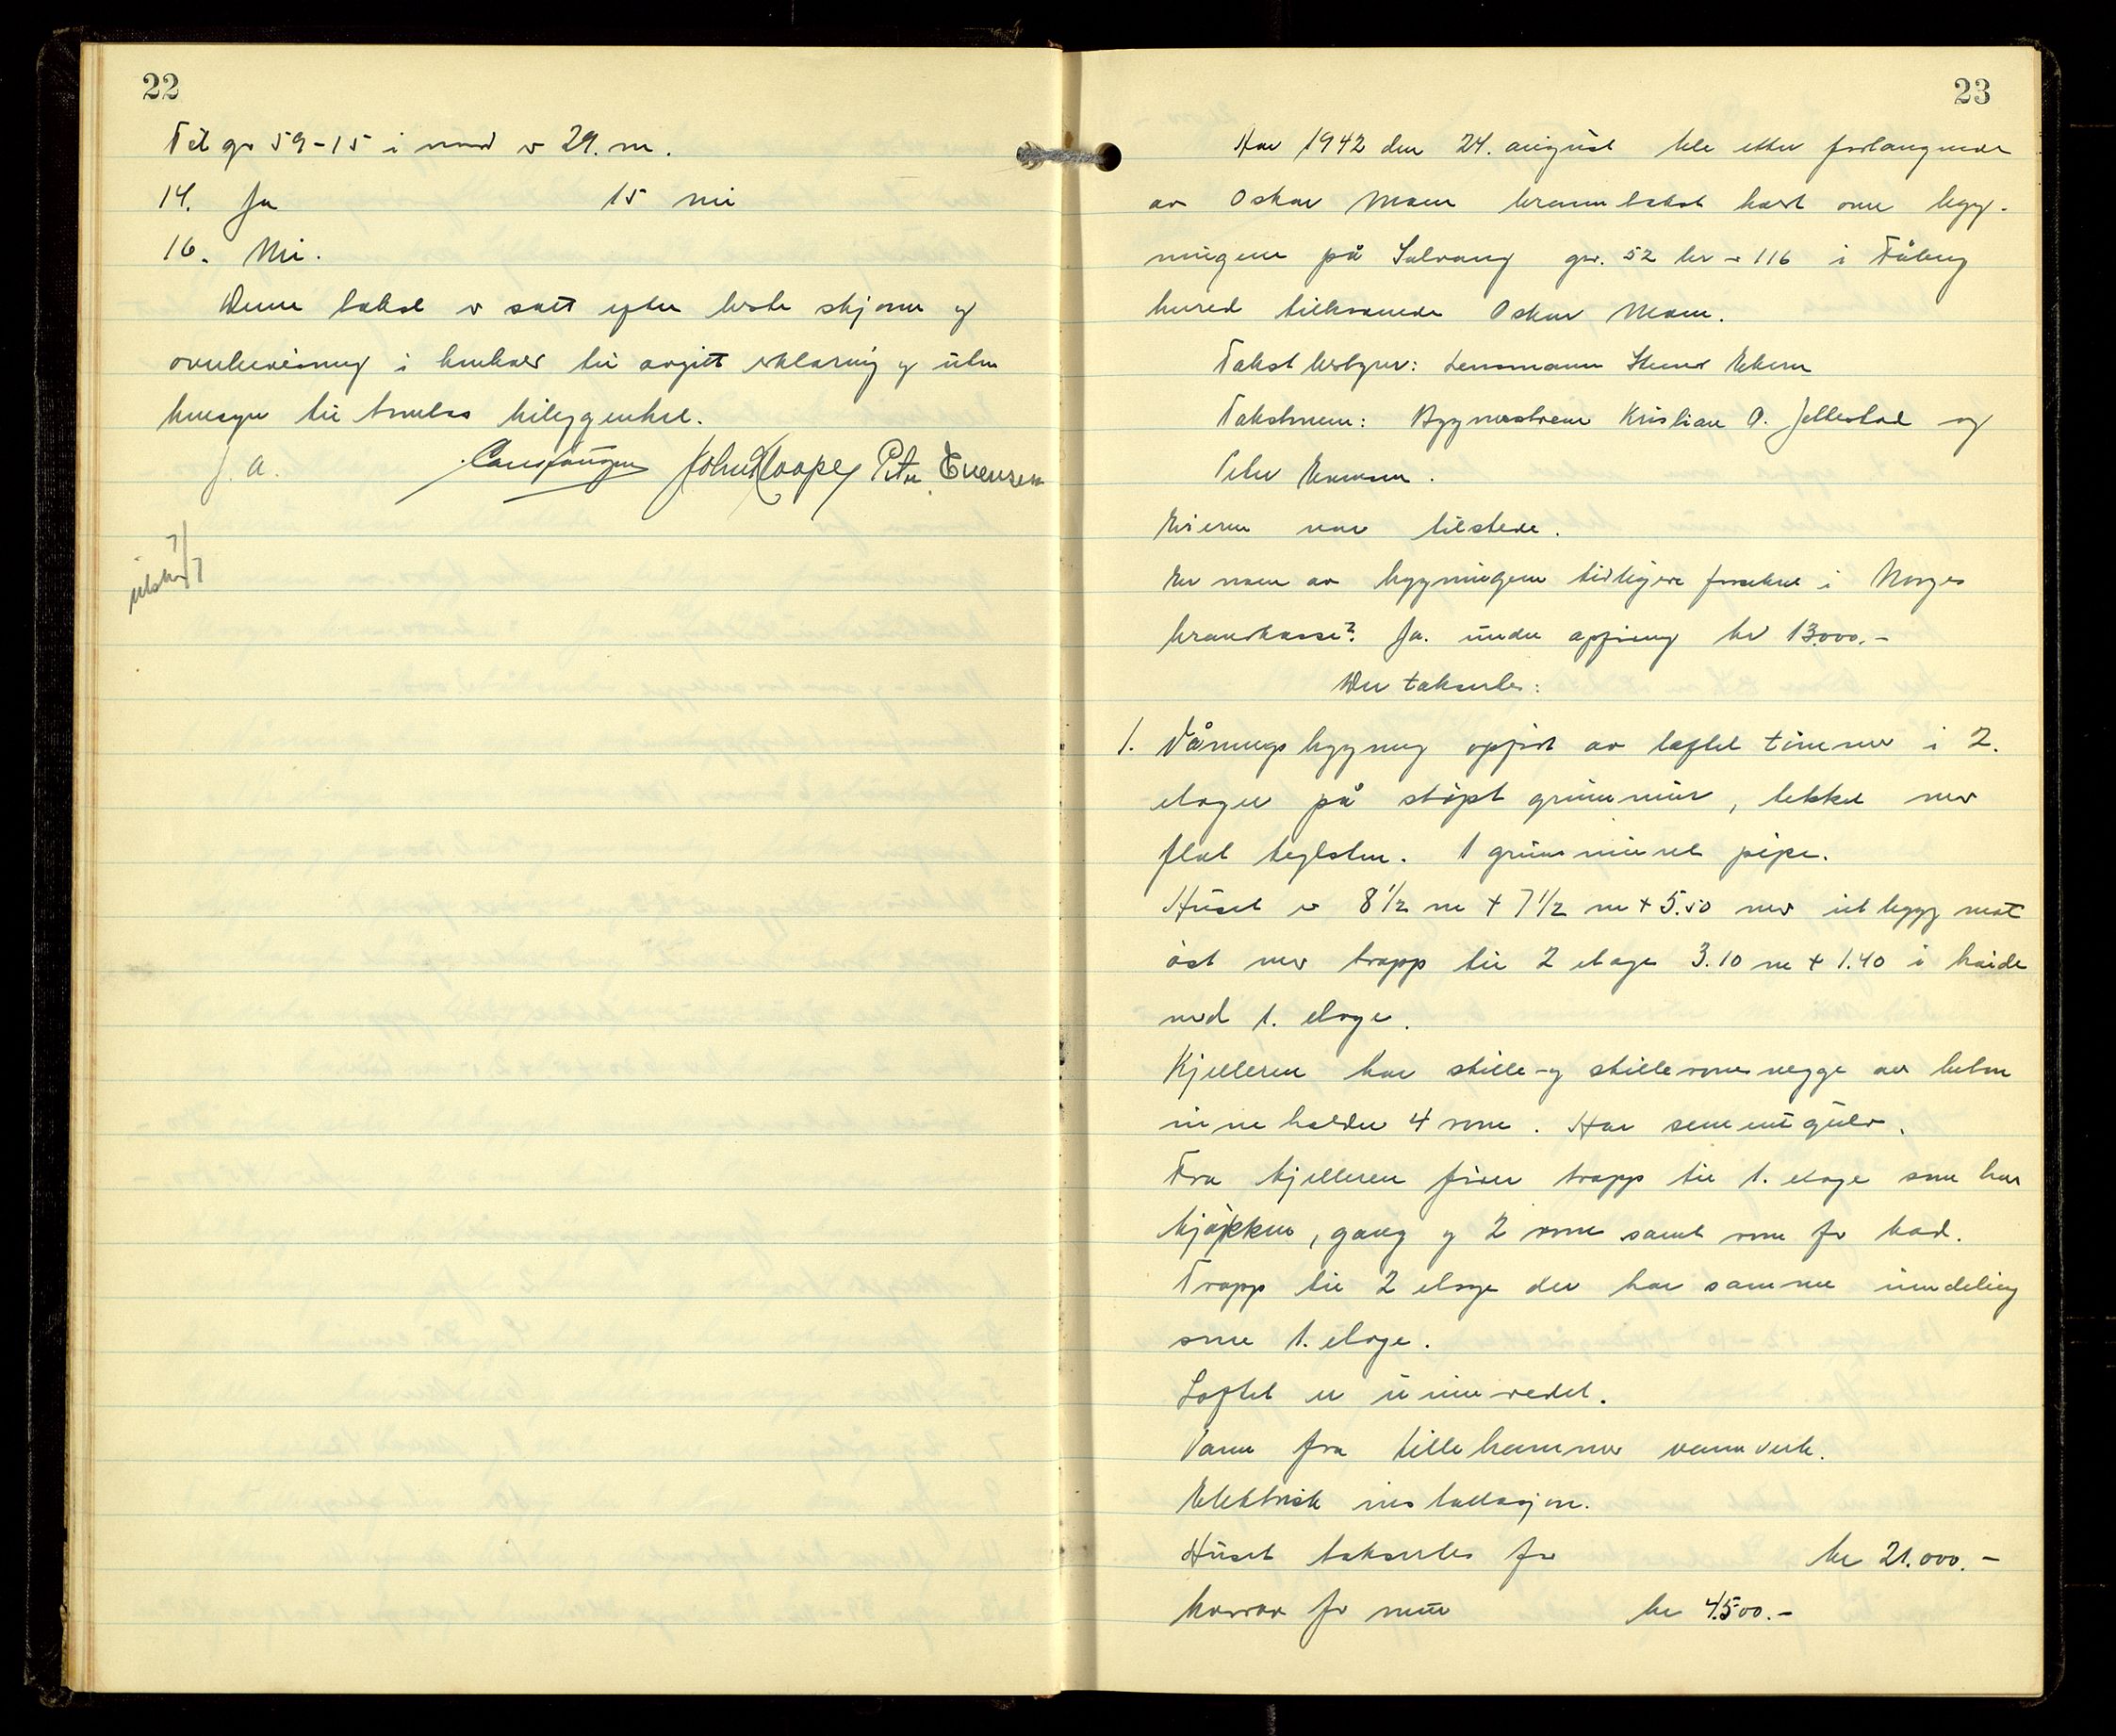 22
Til gr 59-15 i nord er 29. m.
14. Ja 15 nei
16. Nei.
Denne takst er satt efter beste skjønn og
overbevisning i henhold til avgitt erklæring og uten
hensyn til tomtens beliggenhet.
J. A. John Kloppe Peter Evensen
utskr 7/7
23
Aar 1942 den 24. august ble etter forlangende
av Oskar Moen branntakst holdt over bygg-
ningene på Solvang gnr. 52 br nr 116 i Fåberg
herred tilhørende Oskar Moen.
Takst bestyrer: Lensmann Ekern
Takstmenn: Byggmestrene Kristian A. Jettestad og
Peter Evensen.
Eieren var tilstede.
Er noen av bygningene tidligere forsikret i Norges
brandkasse? Ja. under oppføring kr 13000.-
Der taksertes:
1. Våningsbygning oppført av laftet tømmer i 2.
etager på støpt grunnmur, tekket med
flat teglsten. 1 grunnmuret pipe.
Huset er 8 1/2 m + 7 1/2 m + 5.50 med utbygg mot
øst med trapp til 2 etage 3.10 m + 1.40 i høide
med 1. etage.
Kjelleren har skille- og skilleromsvegge av beton
inneholder 4 rom. Har sementgulv.
Fra kjelleren fører trapp til 1. etage som har
kjøkken, gang og 2 rom samt rom for bad.
Trapp til 2 etage der har samme inndeling
som 1. etage.
Loftet er uinnredet.
Vann fra Lillehammer vannverk.
Elektrisk installasjon.
Huset taksertes for kr 21.000.-
hvorav for mur kr 4500.-